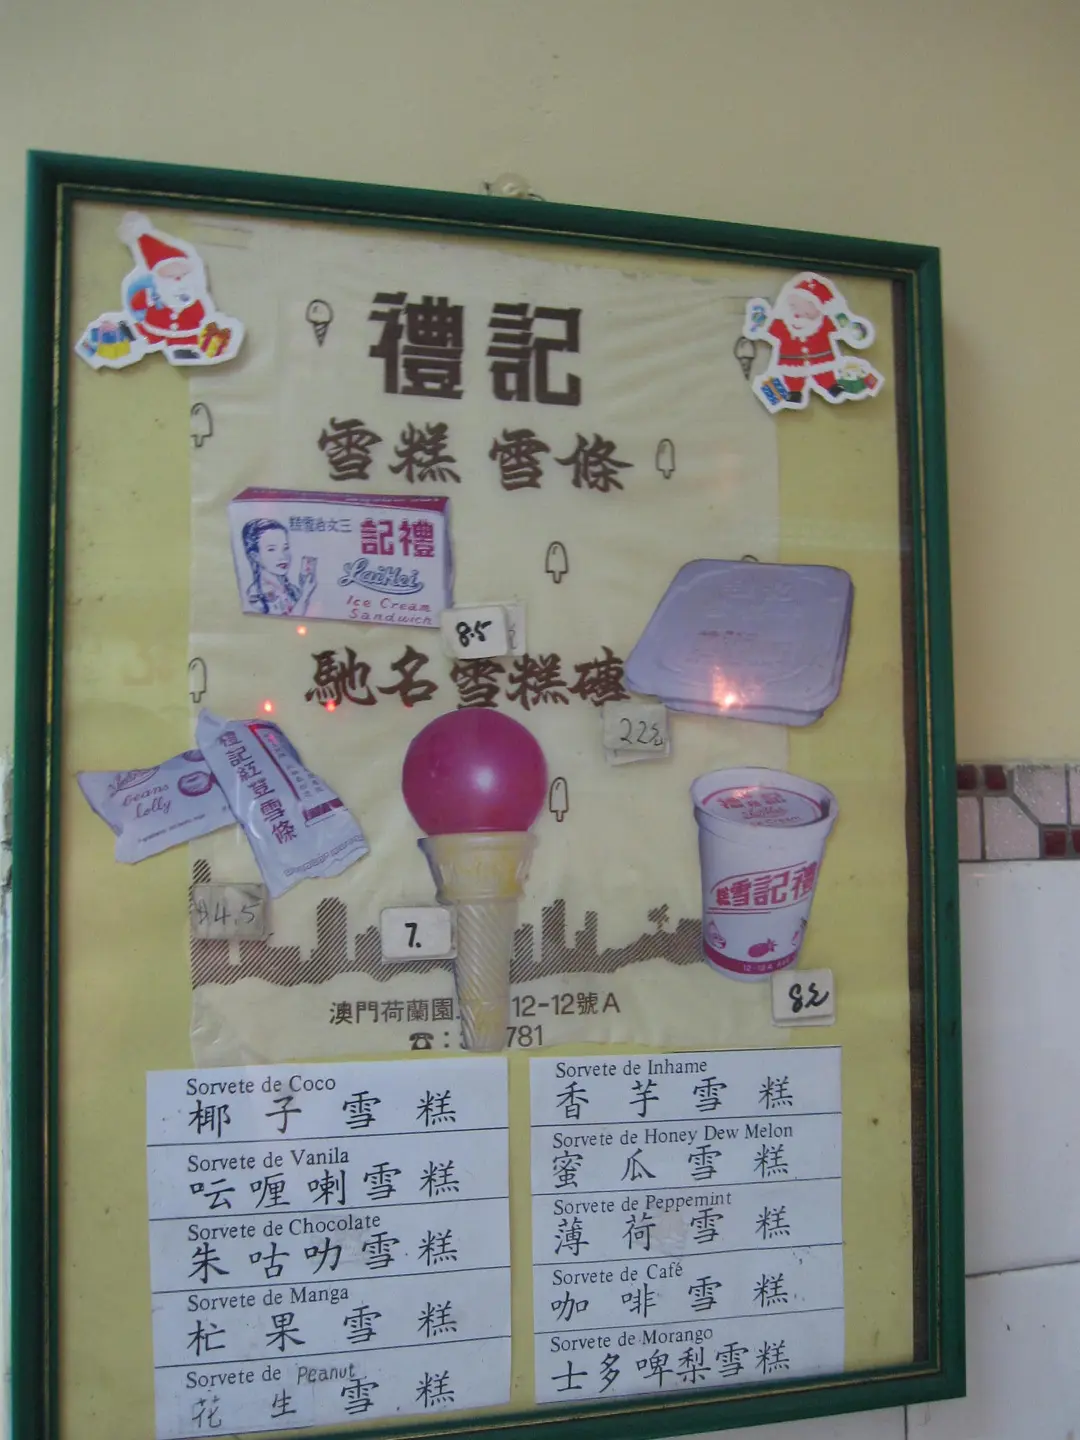 禮記
雪糕 雪條
三文治雪糕
記禮
LaiKei
Ice Cream
Sandwich
8.5
馳名雪糕磚
22元
beans
lolly
禮記紅荳雪條
$4.5
7.
禮記
糕雪記禮
8元
澳門荷蘭園 12-12號A
☎: 781
Sorvete de Coco
椰子雪糕
Sorvete de Vanila
呍喱喇雪糕
Sorvete de Chocolate
朱咕叻雪糕
Sorvete de Manga
杧果雪糕
Sorvete de Peanut
花生雪糕
Sorvete de Inhame
香芋雪糕
Sorvete de Honey Dew Melon
蜜瓜雪糕
Sorvete de Peppemint
薄荷雪糕
Sorvete de Café
咖啡雪糕
Sorvete de Morango
士多啤梨雪糕